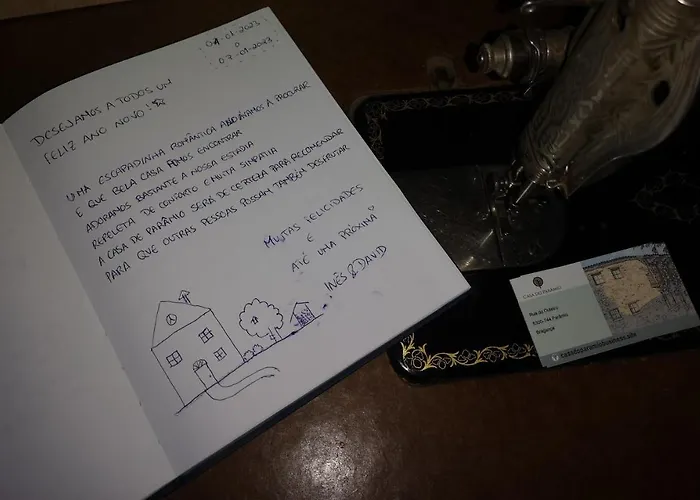 04.01.2023
a
07.01.2023
DESEJAMOS A TODOS UM
FELIZ ANO NOVO!
UMA ESCAPADINHA ROMÂNTICA ANDÁVAMOS A PROCURAR
E QUE BELA CASA FOMOS ENCONTRAR
ADORAMOS BASTANTE A NOSSA ESTADIA
REPLETA DE CONFORTO E MUITA SIMPATIA
A CASA DE PARÂMIO SERÁ DE CERTEZA PARA RECOMENDAR
PARA QUE OUTRAS PESSOAS POSSAM TAMBÉM DESFRUTAR
MUITAS FELICIDADES
E
ATÉ UMA PRÓXIMA
INÊS & DAVID
CASA DO PARÂMIO
Rua do Outeiro
Parâmio
Bragança